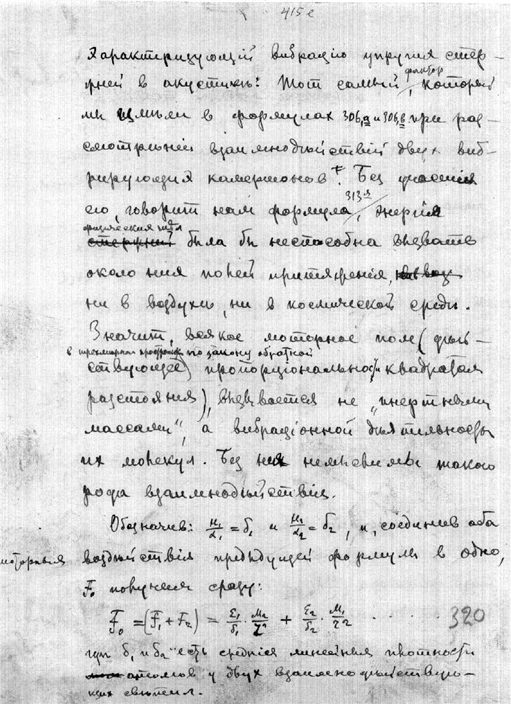 415 е
характеризующій вибрацію упругих стер-
жней в акустикѣ! Тот самый фактор, который
мы имѣли в формулах 306,а и 306,в при раз-
смотрѣніи взаимнодѣйствій двух виб-
рирующих камертонов. Без участія
его, говорит нам формула 313, энергія
физических тѣл
была бы неспособна вызвать
около них полей притяженія,
ни в воздухѣ, ни в космической средѣ.
Значит, всякое моторное поле (дѣй-
в трехмѣрном пространствѣ по закону обратной
ствующее) пропорціональности квадратам
разстоянія), вызывается не "инертными
массами", а вибраціонной дѣятельностью
их молекул. Без них немыслимы такого
рода взаимнодѣйствія.
Обозначив: μ₁/α₁ = δ₁ и μ₁/α₂ = δ₂, и, соединив оба
моторныя воздѣйствія предыдущей формулы в одно,
F₀ получим сразу:
F₀ = (F₁ + F₂) = ε₁/δ₁ · M₂/r² + ε₂/δ₂ · M₁/r² . . . . . 320
гдѣ δ₁ и δ₂ есть среднія линейныя плотности
атомов у двух взаимнодѣйствую-
щих